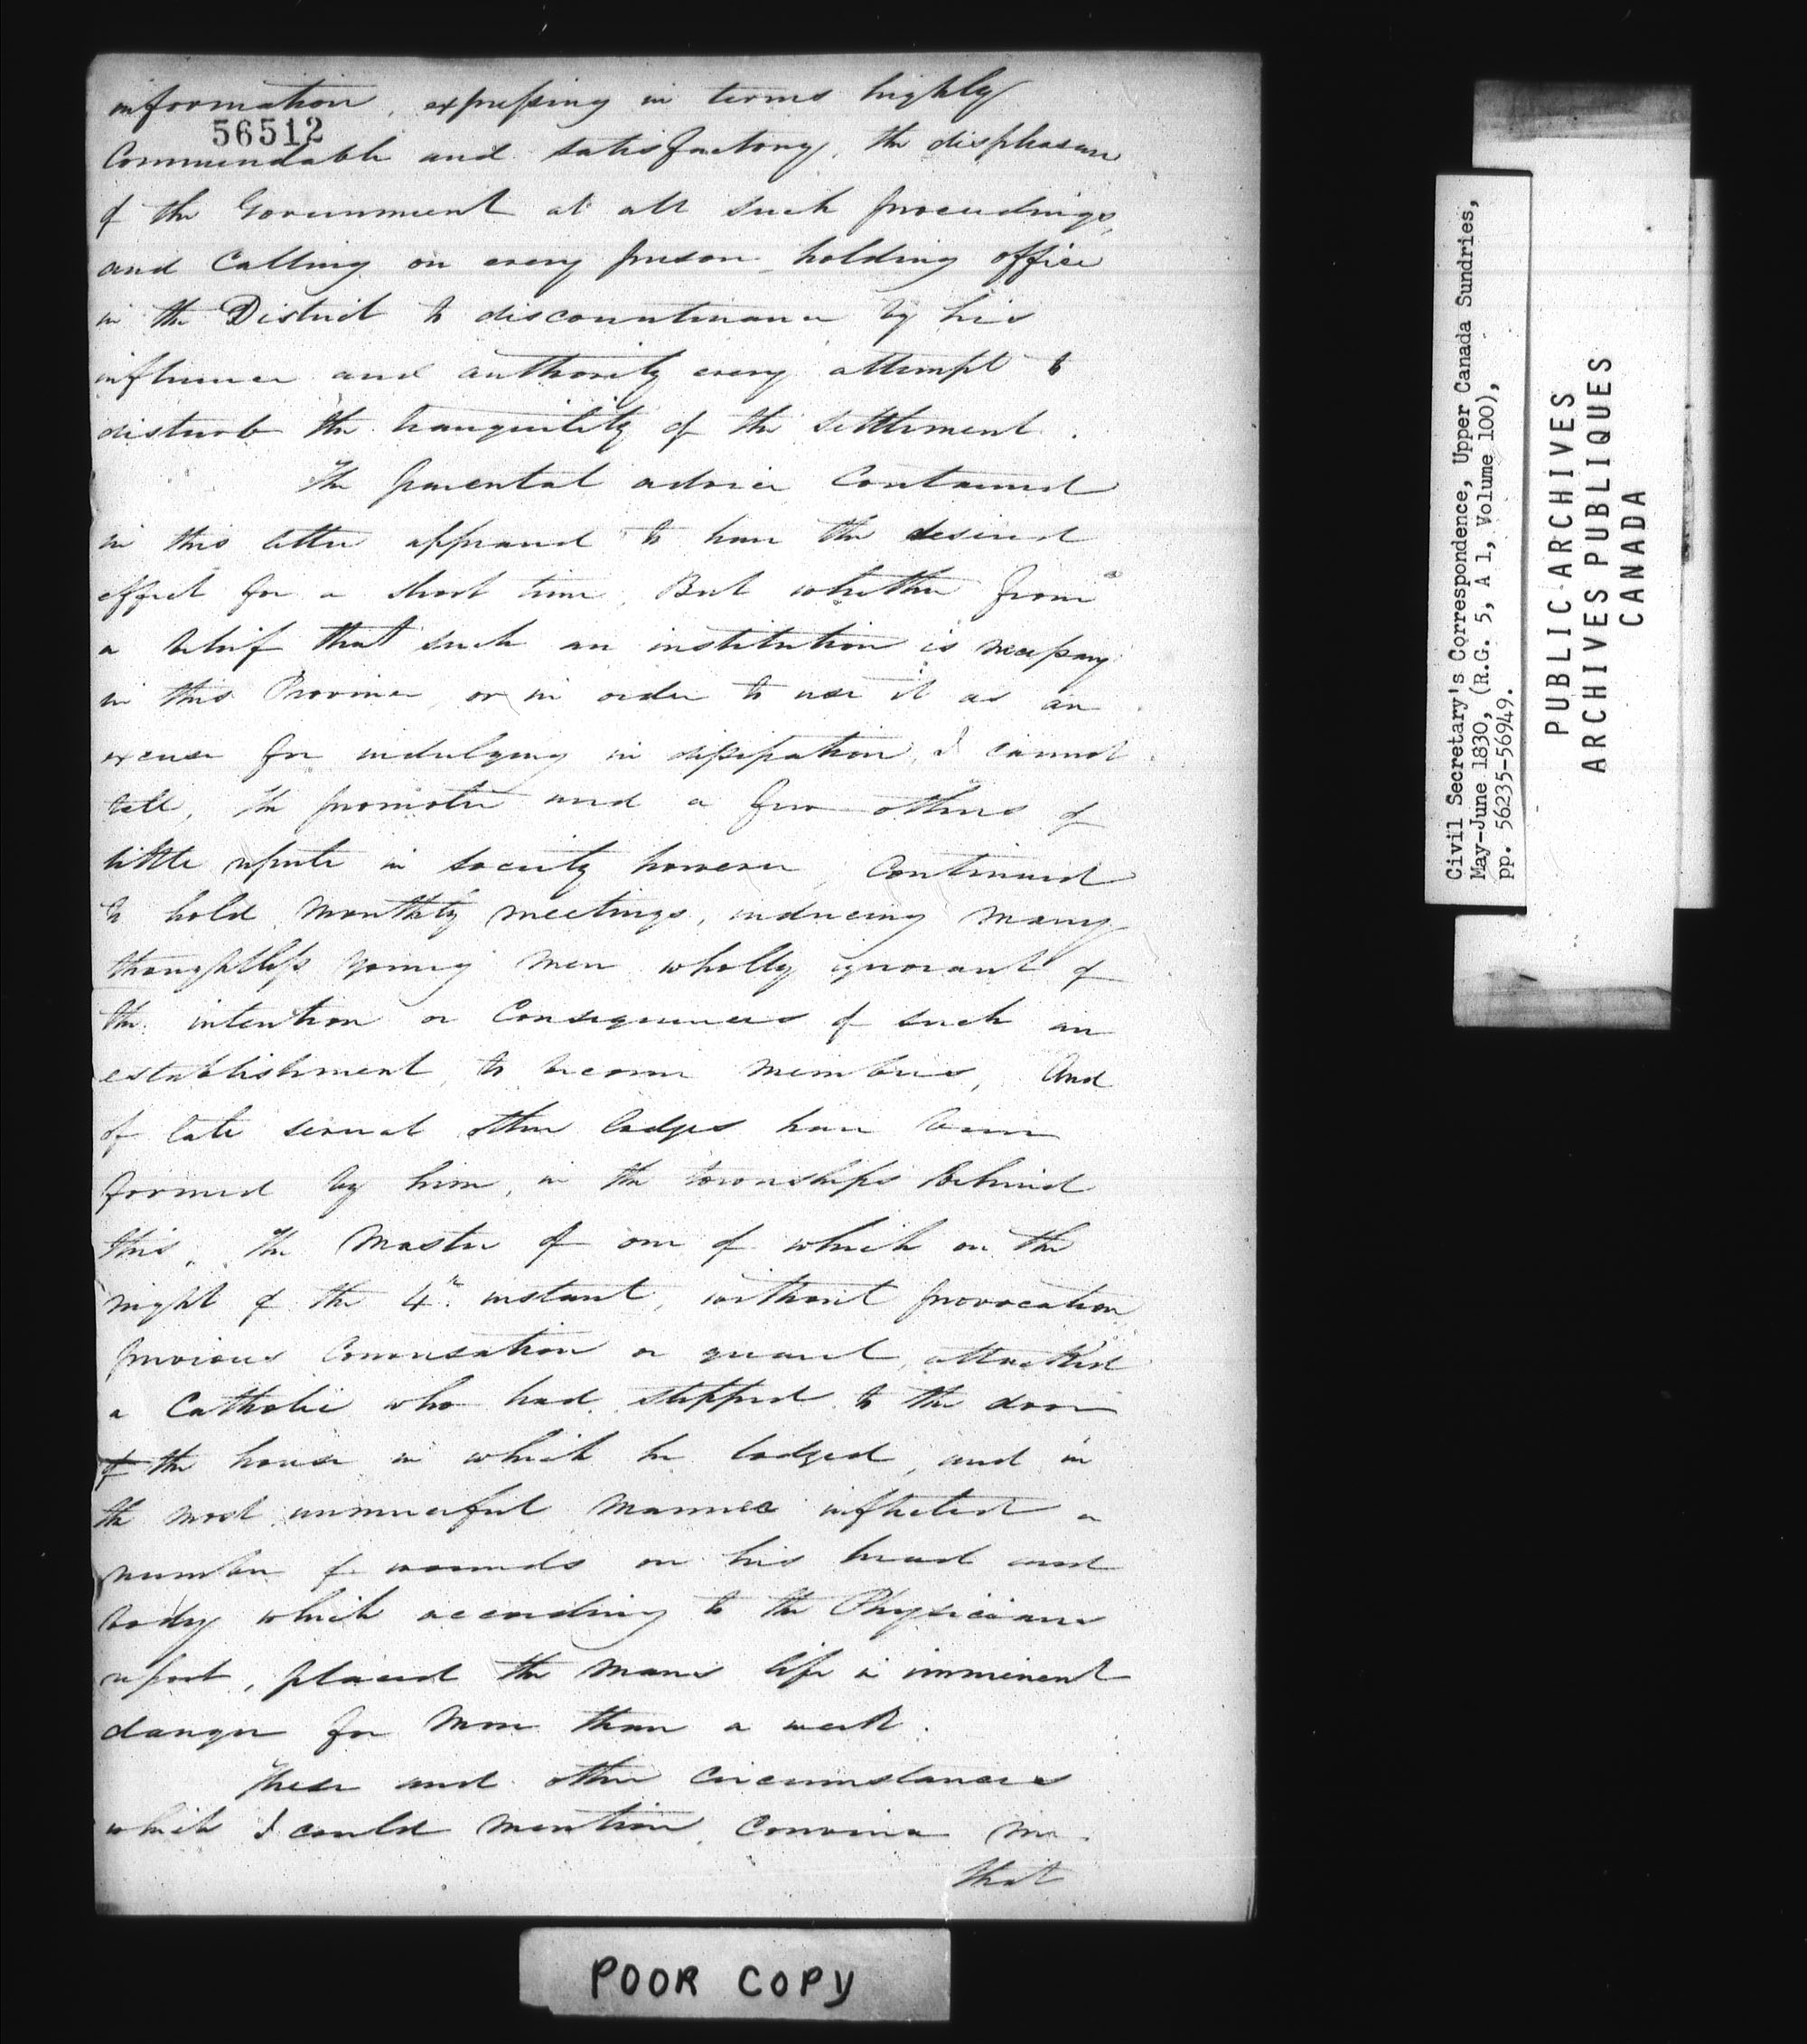 information, expressing in terms highly
56512
Commendable and satisfactory, the displeasure
of the Government at all such proceedings,
and Calling on every person holding office
in the District to discountenance by his
influence and authority every attempt to
disturb the tranquility of the settlement.
The parental advice Contained
in this letter appeared to have the desired
effect for a short time, But whether from
a belief that such an institution is necessary
in this Province, or in order to use it as an
excuse for indulging in dissipation, I cannot
tell, the promoter and a few others of
little repute in society however, Continued
to hold monthly meetings, inducing many
thoughtless young men wholly ignorant of
the intention or Consequences of such an
establishment, to become members, And
of late several other lodges have been
formed by him, in the townships behind
this, the Master of one of which on the
night of the 4th. instant, without provocation,
previous conversation or quarrel, attacked
a Catholic who had stepped to the door
of the house in which he lodged, and in
the most unmerciful manner inflicted a
number of wounds on his head and
body which according to the Physicians
report, placed the mans life in imminent
danger for more than a week.
These and other Circumstances
which I could mention, Convince me
that
POOR COPY
Civil Secretary's Correspondence, Upper Canada Sundries,
May-June 1830, (R.G. 5, A 1, Volume 100),
pp. 56235-56949.
PUBLIC ARCHIVES
ARCHIVES PUBLIQUES
CANADA